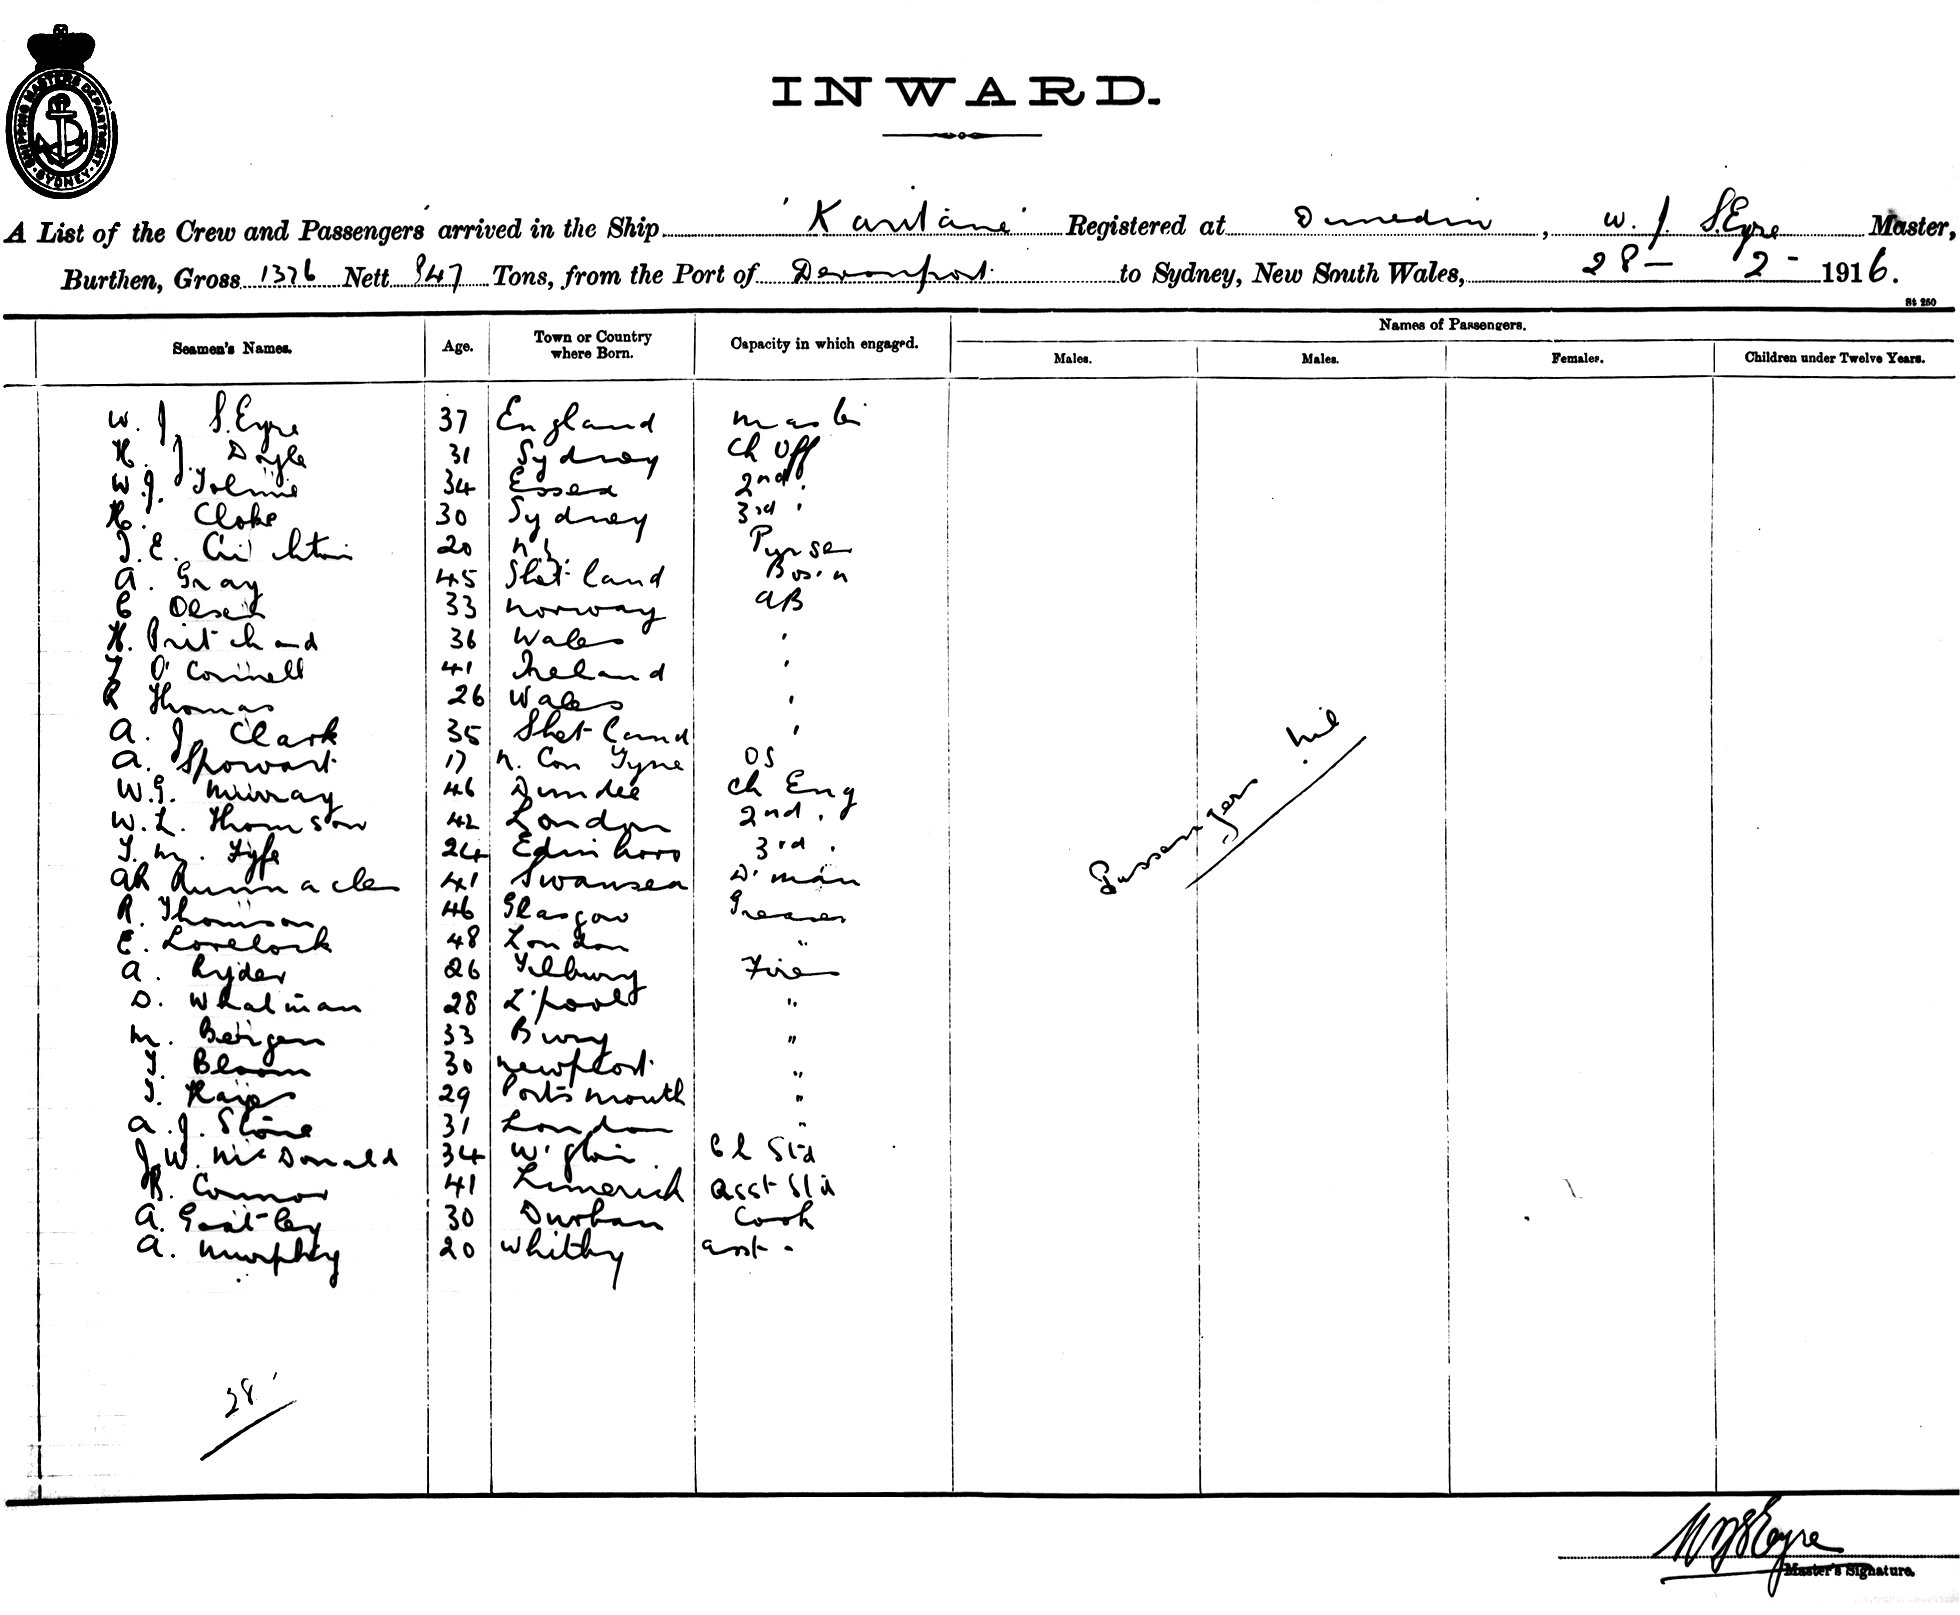 SHIPPING MASTERS DEPARTMENT. SYDNEY.
INWARD.
A List of the Crew and Passengers arrived in the Ship 'Kaitani' Registered at Dunedin, W. J. S. Eyre Master,
Burthen, Gross 1376 Nett 847 Tons, from the Port of Devonport to Sydney, New South Wales, 28 - 2 - 1916.
St 250
Seamen's Names. Age. Town or Country where Born. Capacity in which engaged. Names of Passengers.
Males. Males. Females. Children under Twelve Years.
W. J. S. Eyre 37 England Master
H. J. Doyle 31 Sydney Ch Off
W. J. Tolmie 34 Essex 2nd "
H. Cloke 30 Sydney 3rd "
J. E. Crichton 20 N.Z. Purser
A. Gray 45 Shetland Bosn
C Olsen 33 Norway AB
H. Pritchard 36 Wales "
O'Connell 41 Ireland "
R Thomas 26 Wales "
A. J. Clark 35 Shetland "
A. Spowart 17 N. Con Tyne OS
W. G. Murray 46 Dundee Ch Eng
W. L. Thomson 42 London 2nd "
T. M. Fyfe 24 Edinboro 3rd "
AR Runnacles 41 Swansea D'man
R. Thomson 46 Glasgow Greaser
E. Lovelock 48 London "
A. Ryder 26 Tilbury Fire
D. Whatman 28 L'pool "
M. Bergen 33 Bury "
T. Bloom 30 Newport "
T. 29 Portsmouth "
A. J. Stone 31 London "
J. W. McDonald 34 W'gton Ch Std
R. Connor 41 Limerick Asst Std
A. Goatley 30 Durban Cook
A. Murphy 20 Whitby Asst "
Passengers nil
28
WJSEyre
Master's Signature.